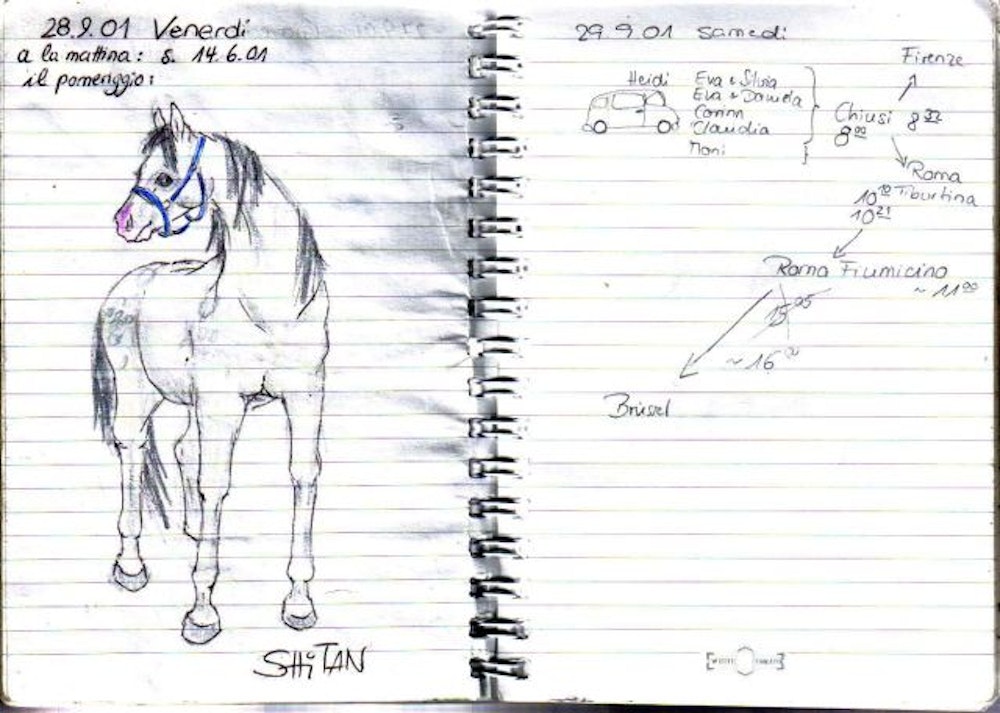 28.9.01 Venerdi
a la mattina: s. 14.6.01
il pomeriggio:
SHiTAN
29.9.01 samedi
Firenze
Heidi
Eva + Silvia
Eva + Daniela
Corinn
Claudia
Moni
Chiusi 8
8⁰⁰
Roma
10¹⁹ Tiburtina
10²¹
Roma Fiumicino
~ 11⁰⁰
15⁰⁵
~ 16⁰⁰
Brüssel